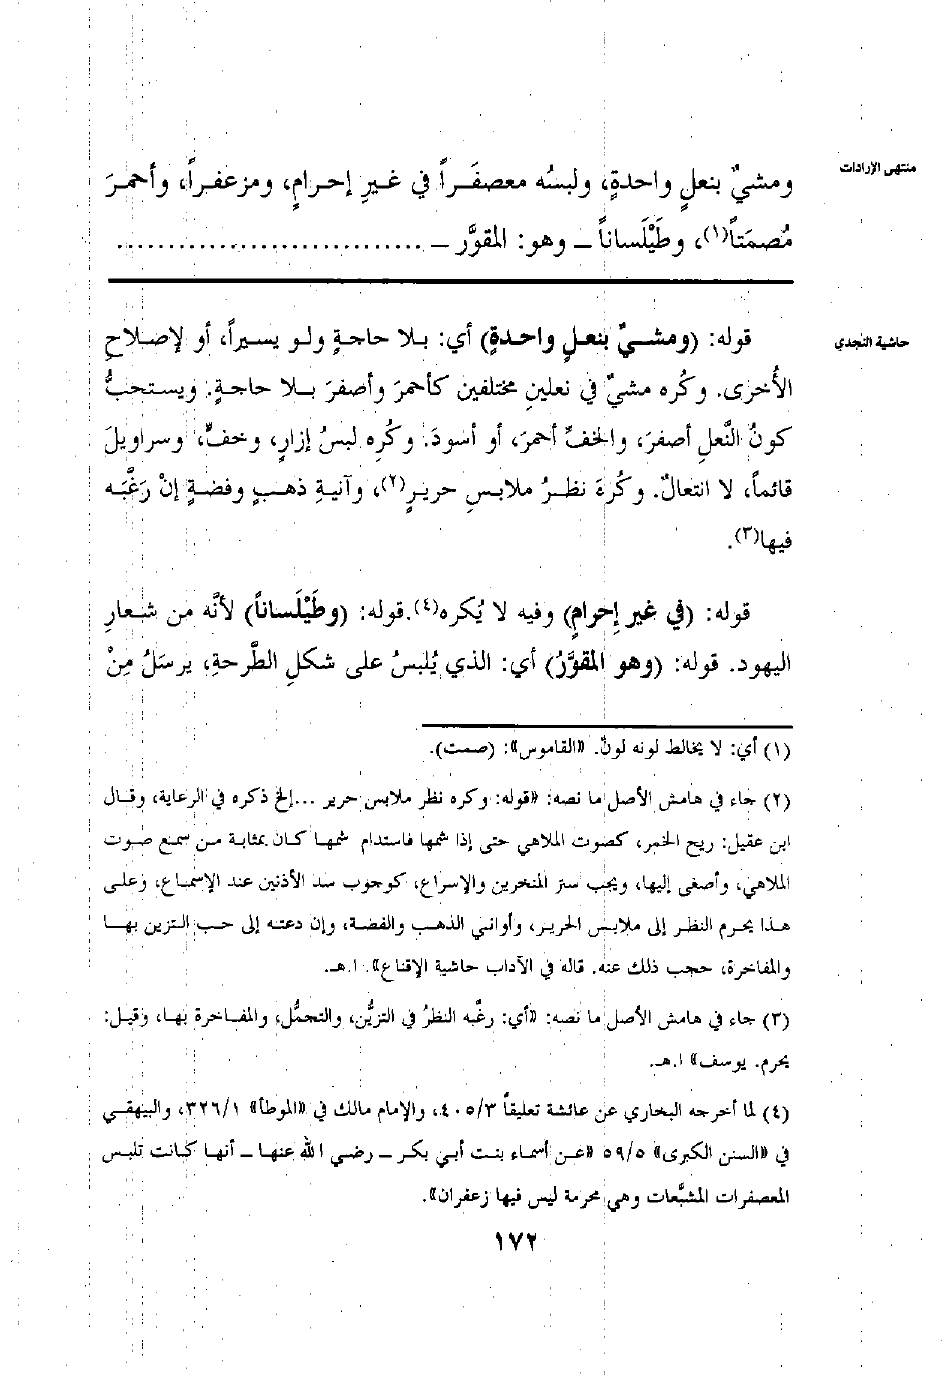 منتهى الإرادات
ومشيٌ بنعلٍ واحدةٍ، ولبسُه معصفَراً في غيرِ إحرامٍ، ومزعفراً، وأحمرَ
مُصمَتاً(١)، وطَيْلَساناً ــ وهو: المقوَّر ــ ..............................
حاشية النجدي
قوله: (ومشيٌ بنعلٍ واحدةٍ) أي: بلا حاجةٍ ولو يسيراً، أو لإصلاحِ
الأُخرى. وكُره مشيٌ في نعلينِ مختلفين كأحمرَ وأصفرَ بلا حاجةٍ. ويستحبُّ
كونُ النَّعلِ أصفرَ، والخفِّ أحمرَ، أو أسودَ. وكُرِه لبسُ إزارٍ، وخفٍّ، وسراويلَ
قائماً، لا انتعالٌ. وكُرهَ نظرُ ملابسِ حريرٍ(٢)، وآنيةِ ذهبٍ وفضةٍ إنْ رَغَّبَه
فيها(٣).
قوله: (في غير إحرامٍ) وفيه لا يُكره(٤).قوله: (وطَيْلَساناً) لأنَّه من شعارِ
اليهود. قوله: (وهو المقوَّرُ) أي: الذي يُلبسُ على شكلِ الطَّرحةِ، يرسَلُ مِنْ
(١) أي: لا يخالط لونه لونٌ. «القاموس»: (صمت).
(٢) جاء في هامش الأصل ما نصه: «قوله: وكره نظر ملابس حرير ...إلخ ذكره في الرعاية، وقال
ابن عقيل: ريح الخمر، كصوت الملاهي حتى إذا شمها فاستدام شمها كان بمثابة من سمع صوت
الملاهي، وأصغى إليها، ويجب ستر المنخرين والإسراع، كوجوب سد الأذنين عند الإسماع، وعلى
هذا يحرم النظر إلى ملابس الحرير، وأواني الذهب والفضة، وإن دعته إلى حب التزين بها
والمفاخرة، حجب ذلك عنه. قاله في الآداب حاشية الإقناع». ا.هـ.
(٣) جاء في هامش الأصل ما نصه: «أي: رغَّبه النظرُ في التزيُّن، والتجمُّل، والمفاخرة بها، وقيل:
يحرم. يوسف» ا.هـ.
(٤) لما أخرجه البخاري عن عائشة تعليقاً ٤٠٥/٣، والإمام مالك في «الموطأ» ٣٢٦/١، والبيهقي
في «السنن الكبرى» ٥٩/٥ «عن أسماء بنت أبي بكر ــ رضي الله عنها ــ أنها كانت تلبس
المعصفرات المشبَّعات وهي محرمة ليس فيها زعفران».
١٧٢